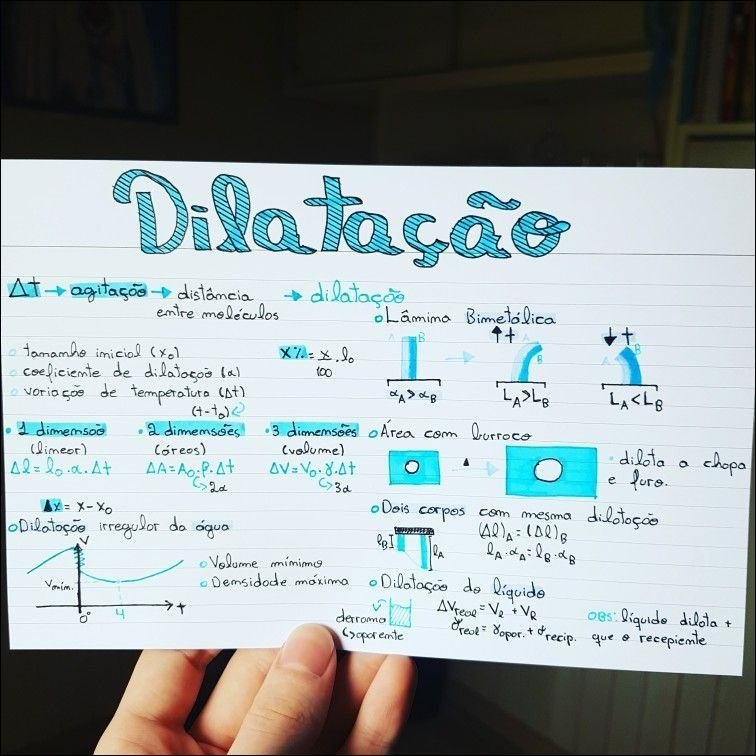 Dilatação
Δt → agitação → distância entre moléculos → dilatação
tamanho inicial (x₀)
coeficiente de dilatação (α)
variação de temperatura (Δt)
(t-t₀)
x% = x/100 . l₀
1 dimensão
(linear)
Δl = l₀.α.Δt
2 dimensões
(áreas)
ΔA = A₀.β.Δt
2α
3 dimensões
(volume)
ΔV = V₀.γ.Δt
3α
Δx = x-x₀
Dilatação irregular da água
V
Vmín.
0°
4
t
Volume mínimo
Densidade máxima
Lâmina Bimetálica
A B
αA > αB
↑t
A
B
LA > LB
↓t
A B
LA < LB
Área com burraco
dilata a chapa
e furo.
Dois corpos com mesma dilatação
lB
lA
(Δl)A = (Δl)B
lA.αA = lB.αB
Dilatação do líquido
derrama
aparente
ΔVreal = Vl + VR
γreal = γapar. + γrecip.
OBS: líquido dilata +
que o recepiente